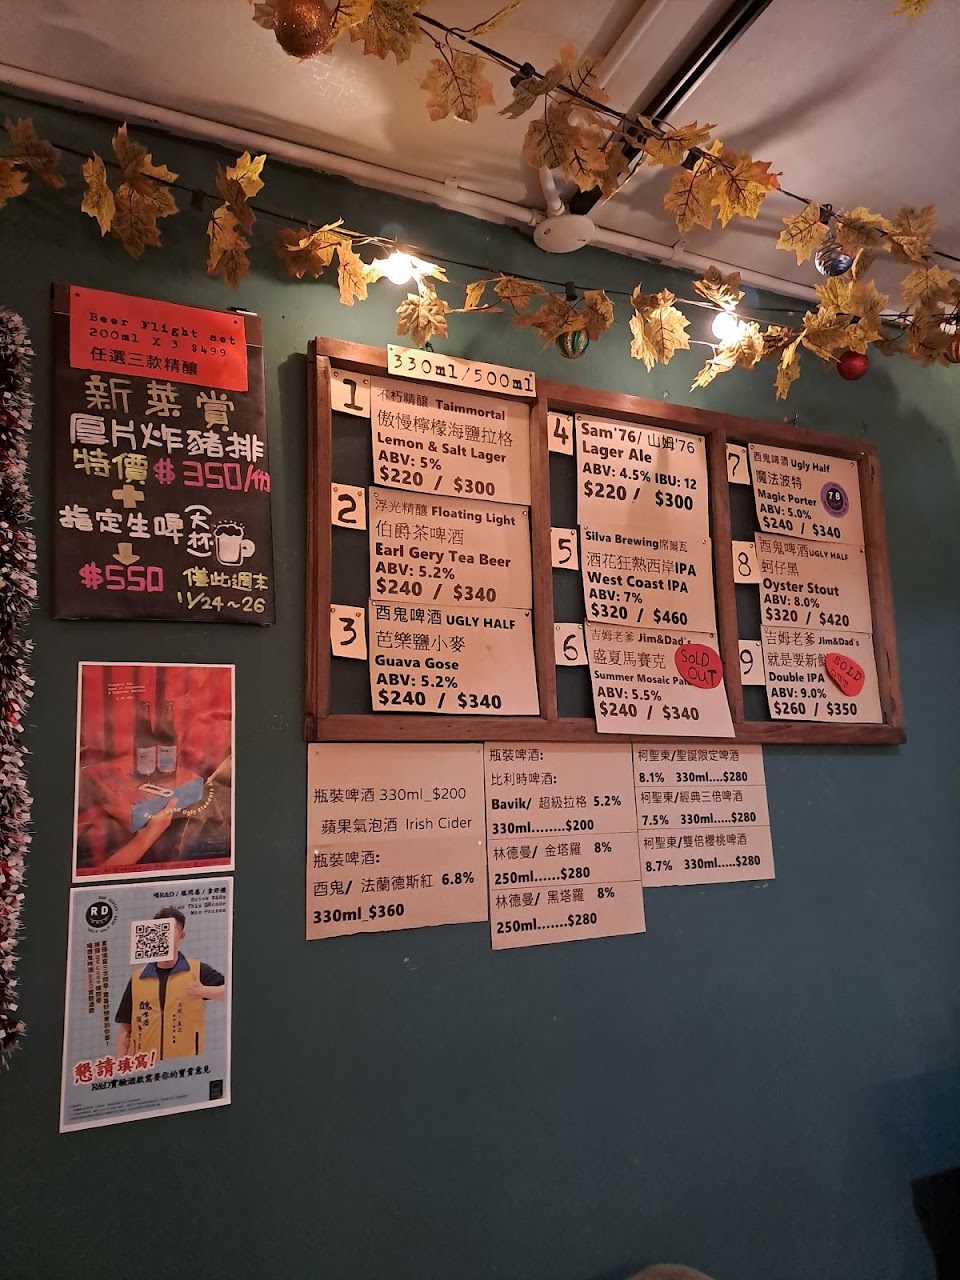 Beer Flight set
200ml X 3 $499
任選三款精釀
新菜賞
厚片炸豬排
特價$350/份
+
指定生啤(大杯)
$550
僅此週末
11/24~26
330ml/500ml
1
不朽精釀 Taimmortal
傲慢檸檬海鹽拉格
Lemon & Salt Lager
ABV: 5%
$220 / $300
2
浮光精釀 Floating Light
伯爵茶啤酒
Earl Gery Tea Beer
ABV: 5.2%
$240 / $340
3
酉鬼啤酒 UGLY HALF
芭樂鹽小麥
Guava Gose
ABV: 5.2%
$240 / $340
4
Sam'76/ 山姆'76
Lager Ale
ABV: 4.5% IBU: 12
$220 / $300
5
Silva Brewing席爾瓦
酒花狂熱西岸IPA
West Coast IPA
ABV: 7%
$320 / $460
6
吉姆老爹 Jim&Dad's
盛夏馬賽克
Summer Mosaic
ABV: 5.5%
$240 / $340
SOLD OUT
7
酉鬼啤酒 Ugly Half
魔法波特
Magic Porter
ABV: 5.0%
$240 / $340
78
8
酉鬼啤酒 UGLY HALF
蚵仔黑
Oyster Stout
ABV: 8.0%
$320 / $420
9
吉姆老爹 Jim&Dad's
就是要新鮮
Double IPA
ABV: 9.0%
$260 / $350
SOLD OUT
瓶裝啤酒 330ml_$200
蘋果氣泡酒 Irish Cider
瓶裝啤酒:
酉鬼/ 法蘭德斯紅 6.8%
330ml_$360
瓶裝啤酒:
比利時啤酒:
Bavik/ 超級拉格 5.2%
330ml........$200
林德曼/ 金塔羅 8%
250ml......$280
林德曼/ 黑塔羅 8%
250ml.......$280
柯聖東/聖誕限定啤酒
8.1% 330ml....$280
柯聖東/經典三倍啤酒
7.5% 330ml....$280
柯聖東/雙倍櫻桃啤酒
8.7% 330ml....$280
喝R&D/填問卷/拿好禮
Drink R&Ds
Scan This QRcode
Win Prizes
RD
懇請填寫!
R&D實驗酒款需要你的寶貴意見